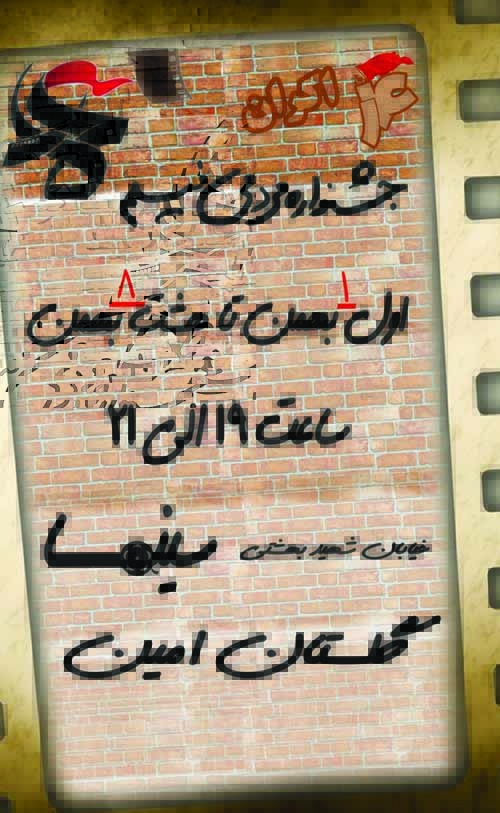 ۱۴ اکران
جشنواره مردمی عمار
۱ ۸
اول بهمن تا هشت بهمن
ساعت ۱۹ الی ۲۱
خیابان شهید بهشتی سینما
گلستان امین